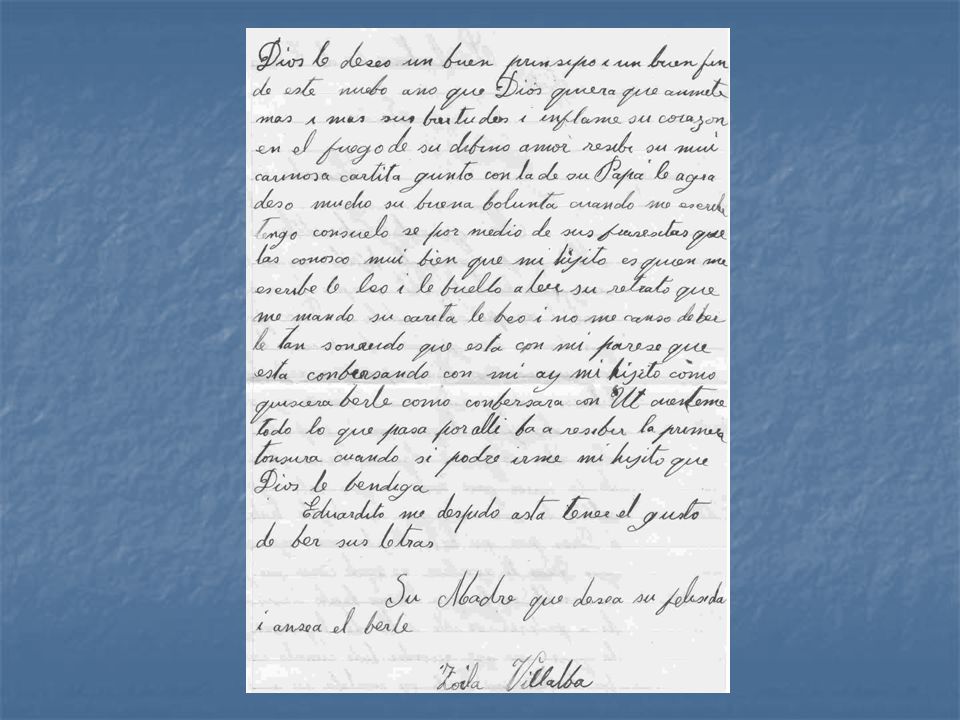 Dios le deseo un buen prinsipo i un buen fin
de este nuebo ano que Dios quiera que aumete
mas i mas sus birtudes i inflame su corazon
en el fuego de su dibino amor resebi su mui
carinosa cartita gunto con la de su Papá le agra
deso mucho su buena bolunta cuando me escribe
tengo consuelo se por medio de sus frasesitas que
las conosco mui bien que mi hijito es quien me
escribe le leo i le buelbo a leer su retrato que
me mando su carita le beo i no me canso de ber
le tan sonriendo que esta con mi parese que
esta conbersando con mi ay mi hijito como
quisiera berle como conbersara con Ut cuenteme
todo lo que pasa por alli ba a resebir la primera
tonsura cuando si podre irme mi hijito que
Dios le bendiga
Eduardito me despido asta tener el gusto
de ber sus letras
Su Madre que desea su felisida
i ansea el berle
Zoila Villalba